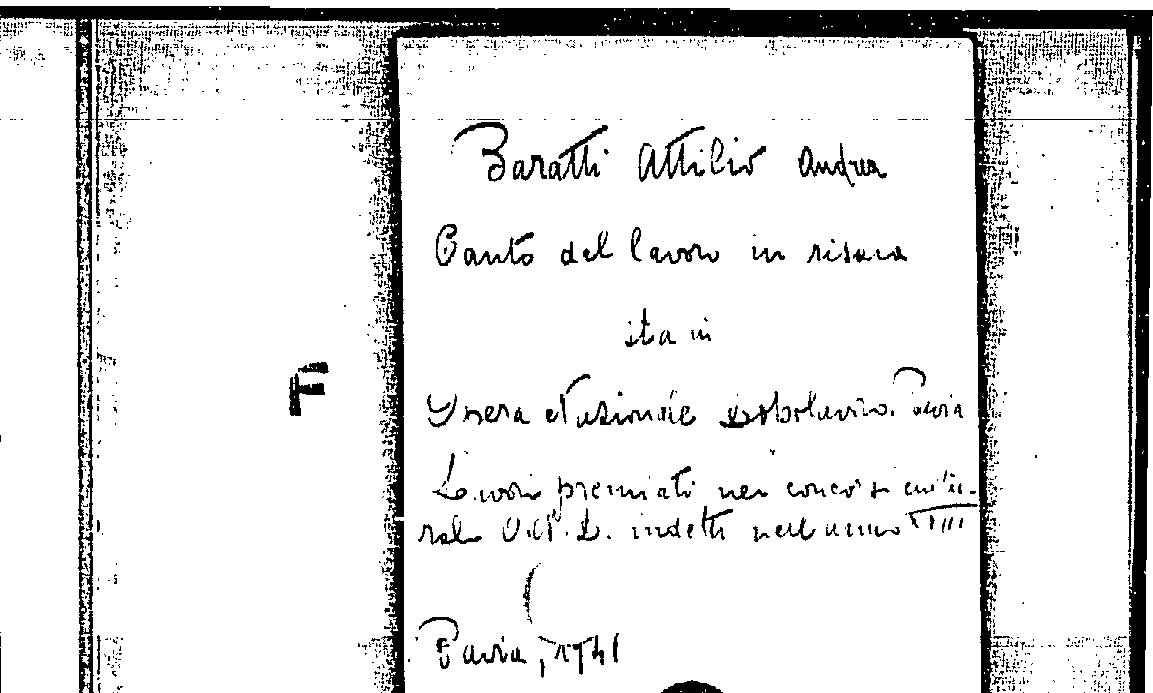 Baratti Attilio Andrea
Canto del lavoro in risaia
sta in
F
Opera Nazionale dopolavoro. Pavia
Lavori premiati nei concorsi cultu-
rali O.N.D. indetti nell'anno XVIII
Pavia, 1941